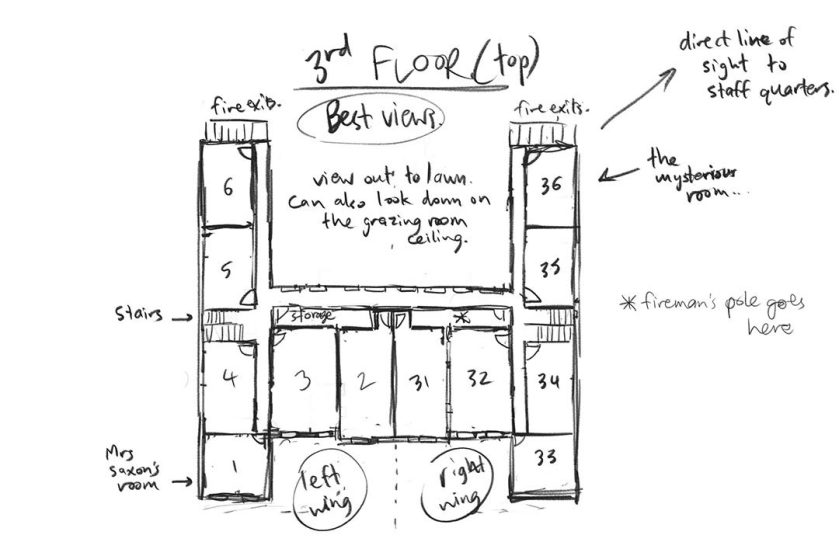 3rd FLOOR (top)
direct line of
sight to
staff quarters.
fire exits.
Best views.
fire exits.
the
mysterious
room...
view out to lawn.
can also look down on
the grazing room
ceiling.
6
36
5
35
Stairs
storage
*
* fireman's pole goes
here
4
3
2
31
32
34
Mrs
Saxon's
room
1
33
left
wing
right
wing